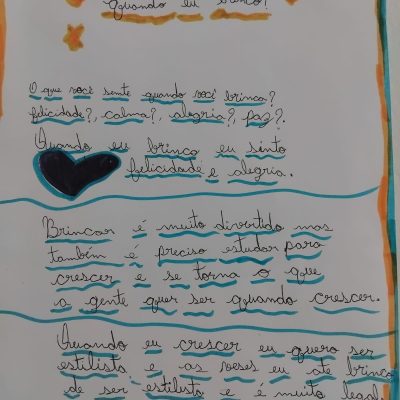 Quando eu brinco?
O que você sente quando você brinca?
felicidade?, calma?, alegria?, paz?.
Quando eu brinco eu sinto
felicidade e alegria.
Brincar é muito divertido mas
também é preciso estudar para
crescer e se torna o que
a gente quer ser quando crescer.
Quando eu crescer eu quero ser
estilista e as veses eu até brinco
de ser estilista e é muito legal